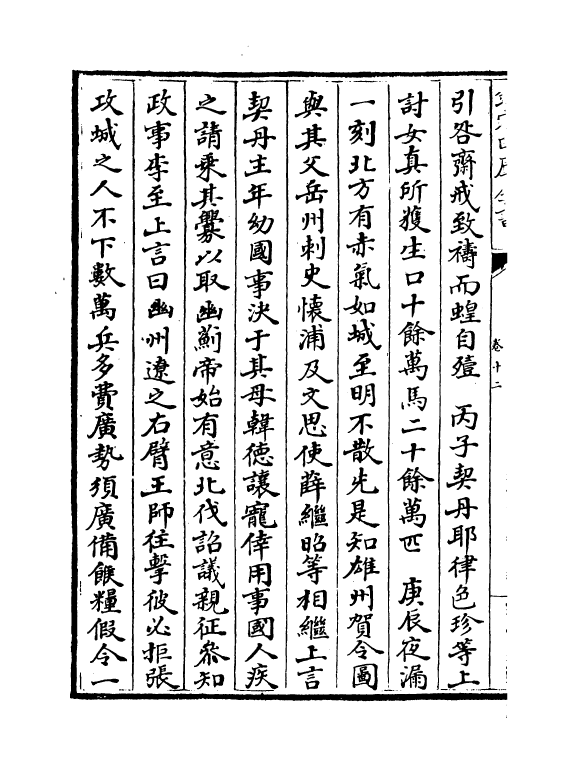 卷十二
引咎齋戒致禱而蝗自殪　丙子契丹耶律色珍等上
討女真所獲生口十餘萬馬二十餘萬匹　庚辰夜漏
一刻北方有赤氣如城至明不散先是知雄州賀令圖
與其父岳州刺史懷浦及文思使薛繼昭等相繼上言
契丹主年幼國事決于其母韓德讓寵倖用事國人疾
之請乘其釁以取幽薊帝始有意北伐詔議親征參知
政事李至上言曰幽州遼之右臂王師往擊彼必拒張
攻城之人不下數萬兵多費廣勢須廣備餱糧假令一